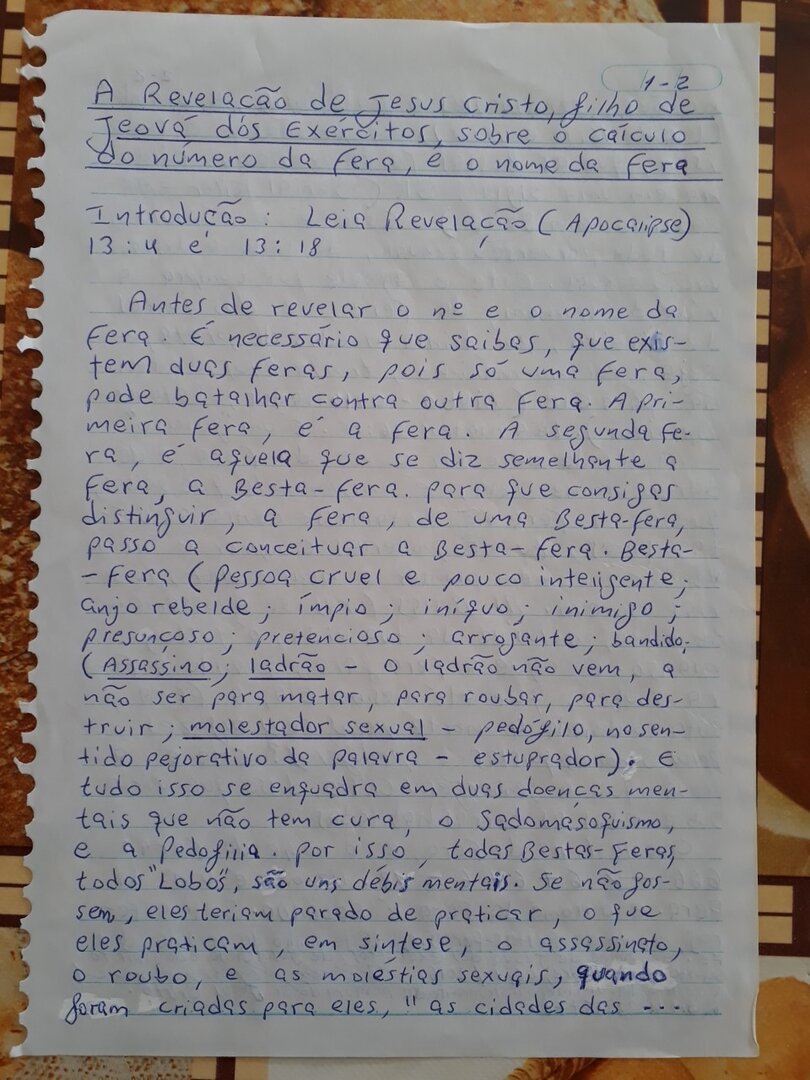 1-2
A Revelação de Jesus Cristo, filho de
Jeová dós Exércitos, sobre o cálculo
do número da fera, e o nome da fera
Introdução: Leia Revelação (Apocalipse)
13:4 e 13:18
Antes de revelar o nº e o nome da
fera. É necessário que saibas, que exis-
tem duas feras, pois só uma fera,
pode batalhar contra outra fera. A pri-
meira fera, é a fera. A segunda fe-
ra, é aquela que se diz semelhante a
fera, a Besta-fera. para que consigas
distinguir, a fera, de uma Besta-fera,
passo a conceituar a Besta-fera. Besta-
-fera (pessoa cruel e pouco inteligente;
anjo rebelde; ímpio; iníquo; inimigo;
presunçoso; pretencioso; arrogante; bandido;
(Assassino; ladrão - o ladrão não vem, a
não ser para matar, para roubar, para des-
truir; molestador sexual - pedófilo, no sen-
tido pejorativo da palavra - estuprador). E
tudo isso se enquadra em duas doenças men-
tais que não tem cura, o Sadomásoquismo,
e a Pedofilia. por isso, todas Bestas-Feras,
todos "Lobos", são uns débis mentais. Se não fos-
sem, eles teriam parado de praticar, o que
eles praticam, em síntese, o assassinato,
o roubo, e as moléstias sexuais, quando
foram criadas para eles, "as cidades das ...